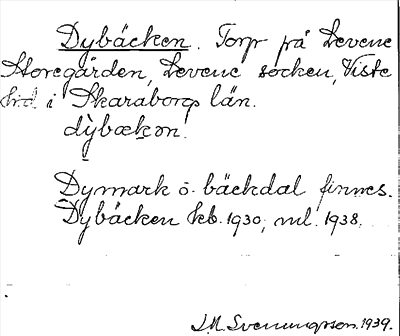 Dybäcken. Torp på Levene
Storegården, Levene socken, Viste
hd. i Skaraborgs län.
dỳbækən.
Dymark o. bäckdal finnes.
Dybäcken kb. 1930, ml. 1938.
J.A. Svenungsson. 1939.